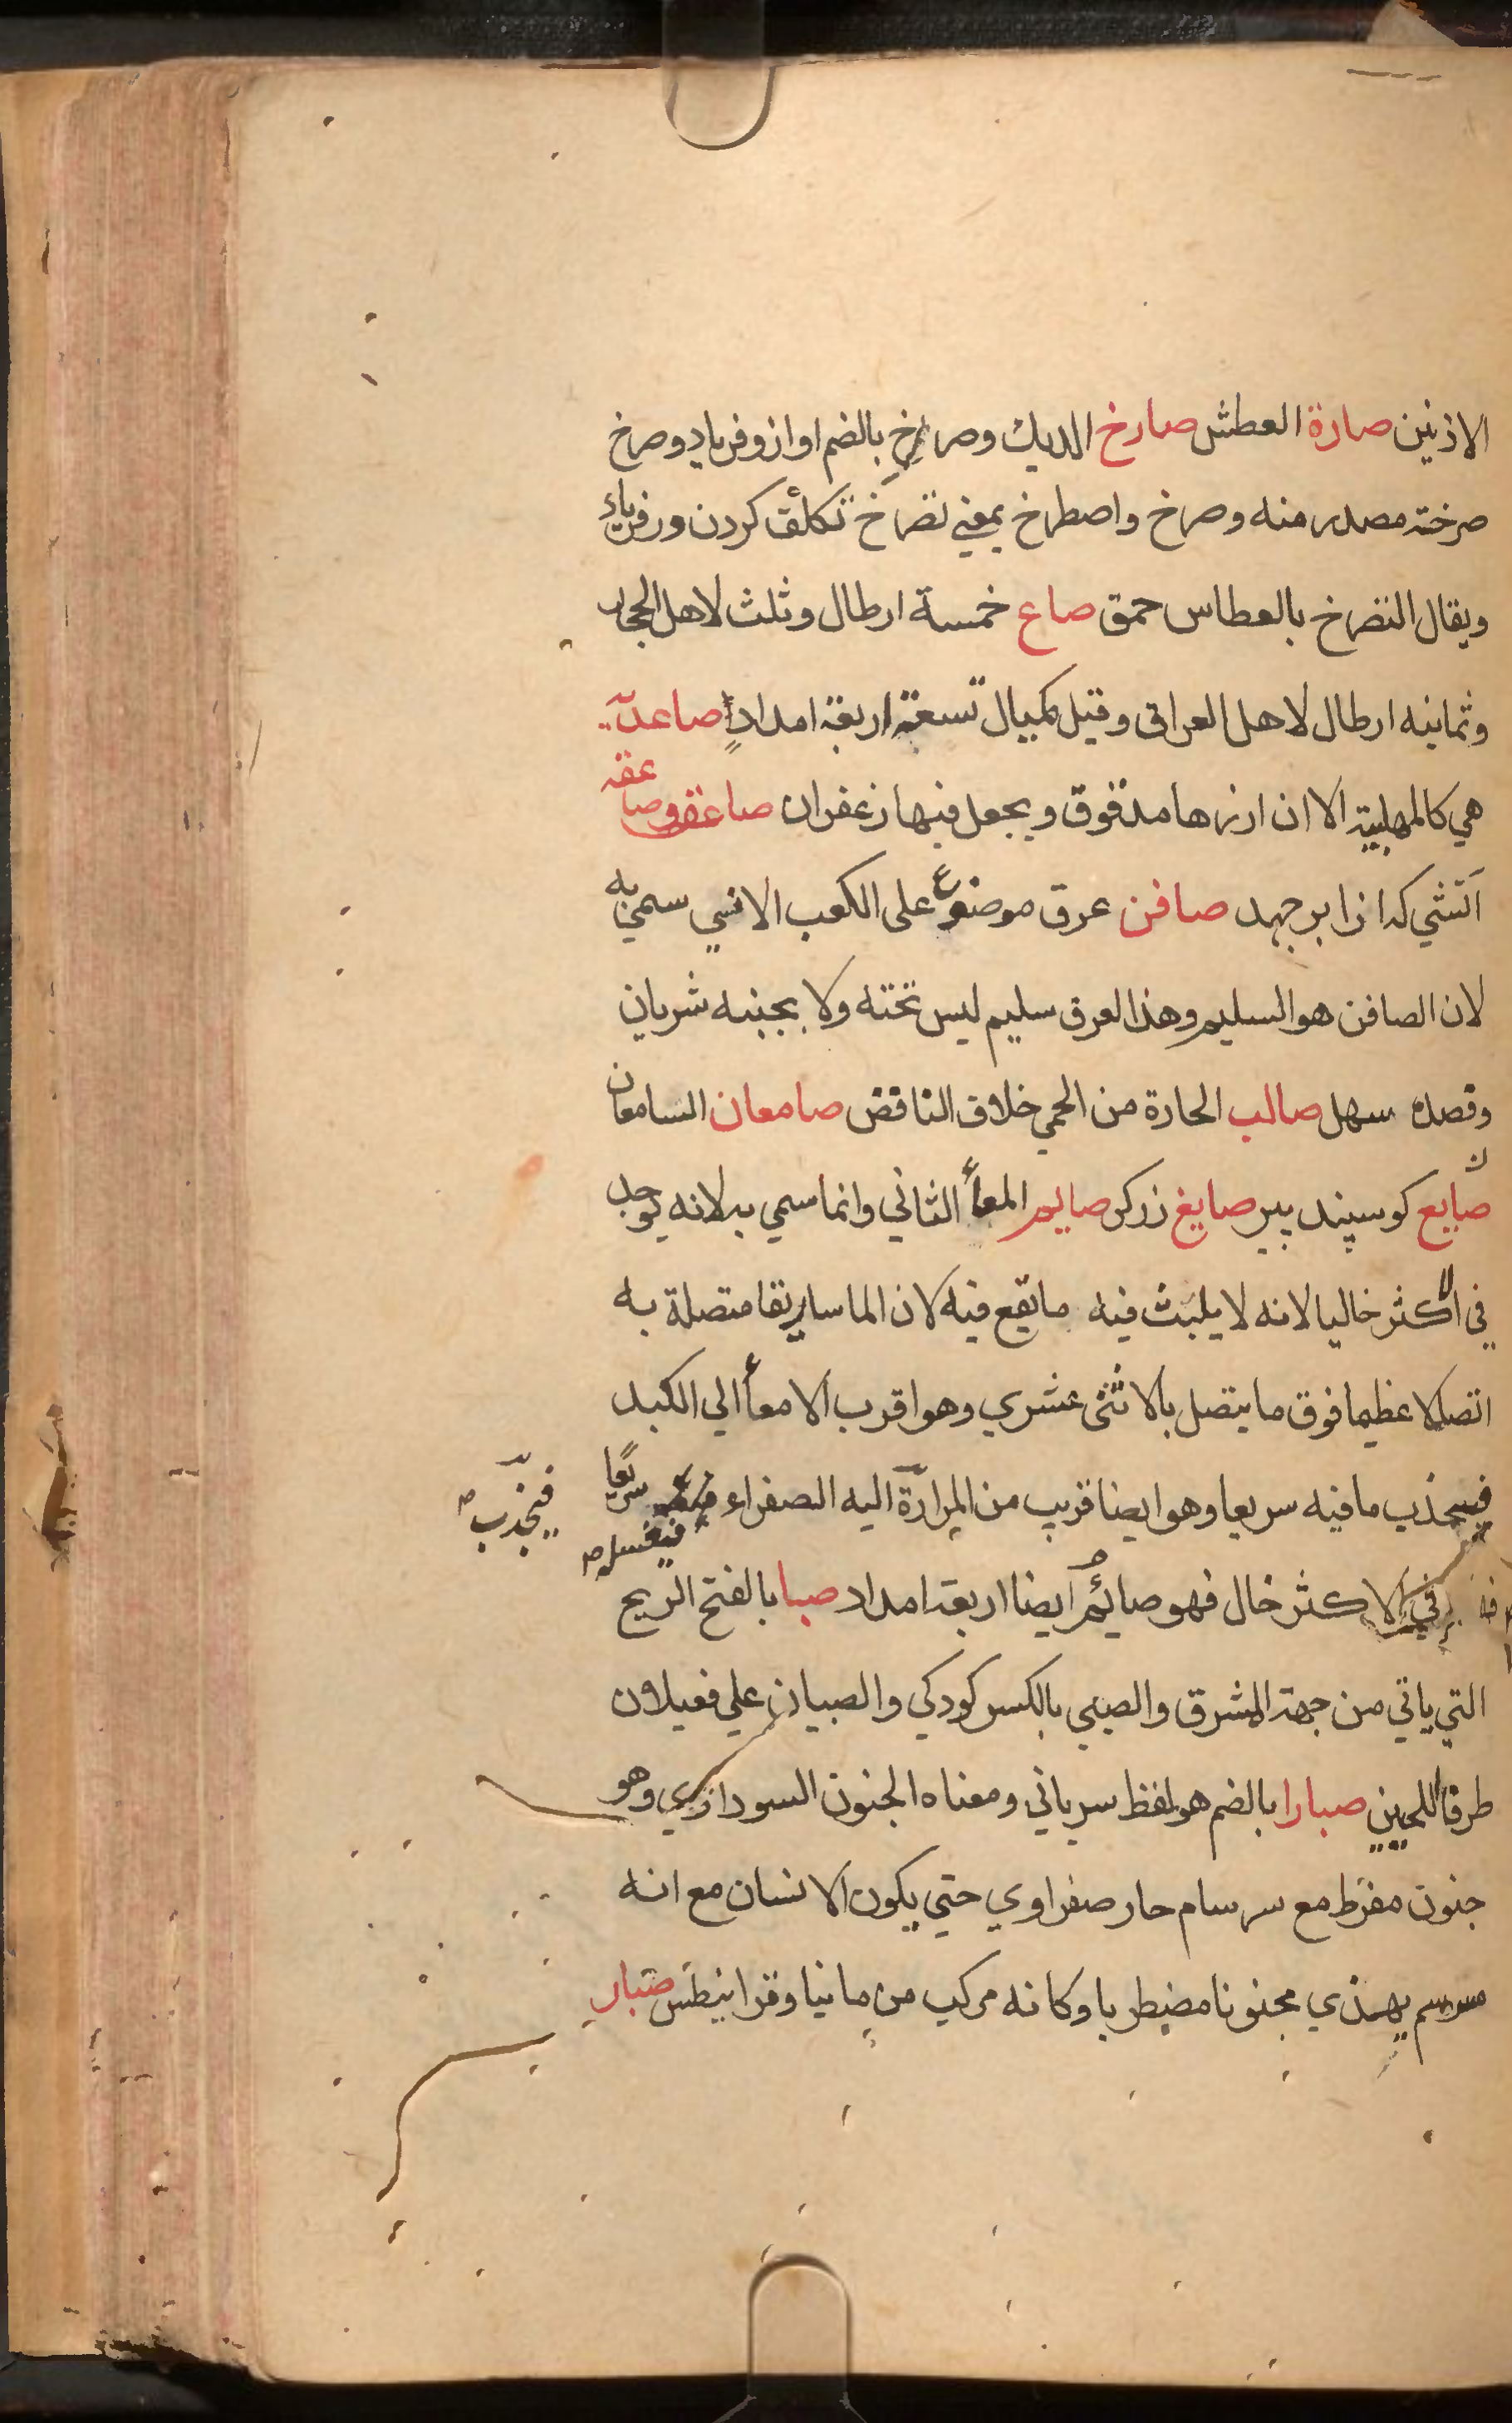 الاذنين صارة العطش صارخ الديك وصراخ بالضم اواز وفرياد وصرخ
صرخته مصدر منه وصرخ واصطرخ بمعني تصرخ تكلّف كردن ورفرياد
ويقال التصرخ بالعطاس حمق صاع خمسة ارطال وثلث لاهل الحجاز
وثمانيه ارطال لاهل العراق وقيل مكيال تسعة اربعة امدادٍ صاعديّه
هي كالمهلبية الا ان ارزها مدقوق ويجعل فيها زعفران صاعقه وصاعقه
آتشي كه از ابر جهد صافن عرق موضوع على الكعب الانسي سمي به
لان الصافن هو السليم وهذا العرق سليم ليس تحته ولا بجنبه شريان
وفصده سهل صالب الحارة من الحمي خلاف النافض صامعان السامعان
صايع كوسپند پير صايغ زركر صايم المعأ الثاني وانما سمي به لانه يوجد
في الاكثر خاليا لانه لا يلبث فيه ما يقع فيه لان الماساريقا متصلة به
اتصالا عظيما فوق ما يتصل بالاثنى عشري وهو اقرب الامعأ الي الكبد
فيجذب ما فيه سريعا وهو ايضا قريب من المرارة اليه الصفراء سريعًا
فينجذب
فيغسله
في الاكثر خال فهو صائم ايضا اربعة امداد صبا بالفتح الريح
التي ياتي من جهة المشرق والصبي بالكسر كودكي والصبيان علي فعيلان
طرفا اللحيين صبارا بالضم هو لفظ سرياني ومعناه الجنون السوداوي وهو
جنون مفرط مع سرسام حار صفراوي حتي يكون الانسان مع انه
مسرسم يهذي مجنونا مضطربا وكانه مركب من مانيا وقرانيطس صبار